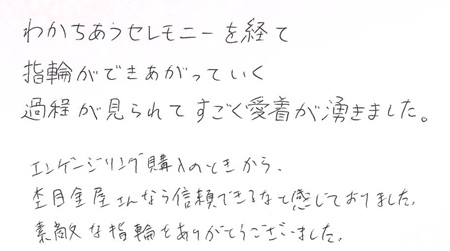 わかちあうセレモニーを経て
指輪ができあがっていく
過程が見られてすごく愛着が湧きました。
エンゲージリング購入のときから、
杢目金屋さんなら信頼できるなと感じておりました。
素敵な指輪をありがとうございました。